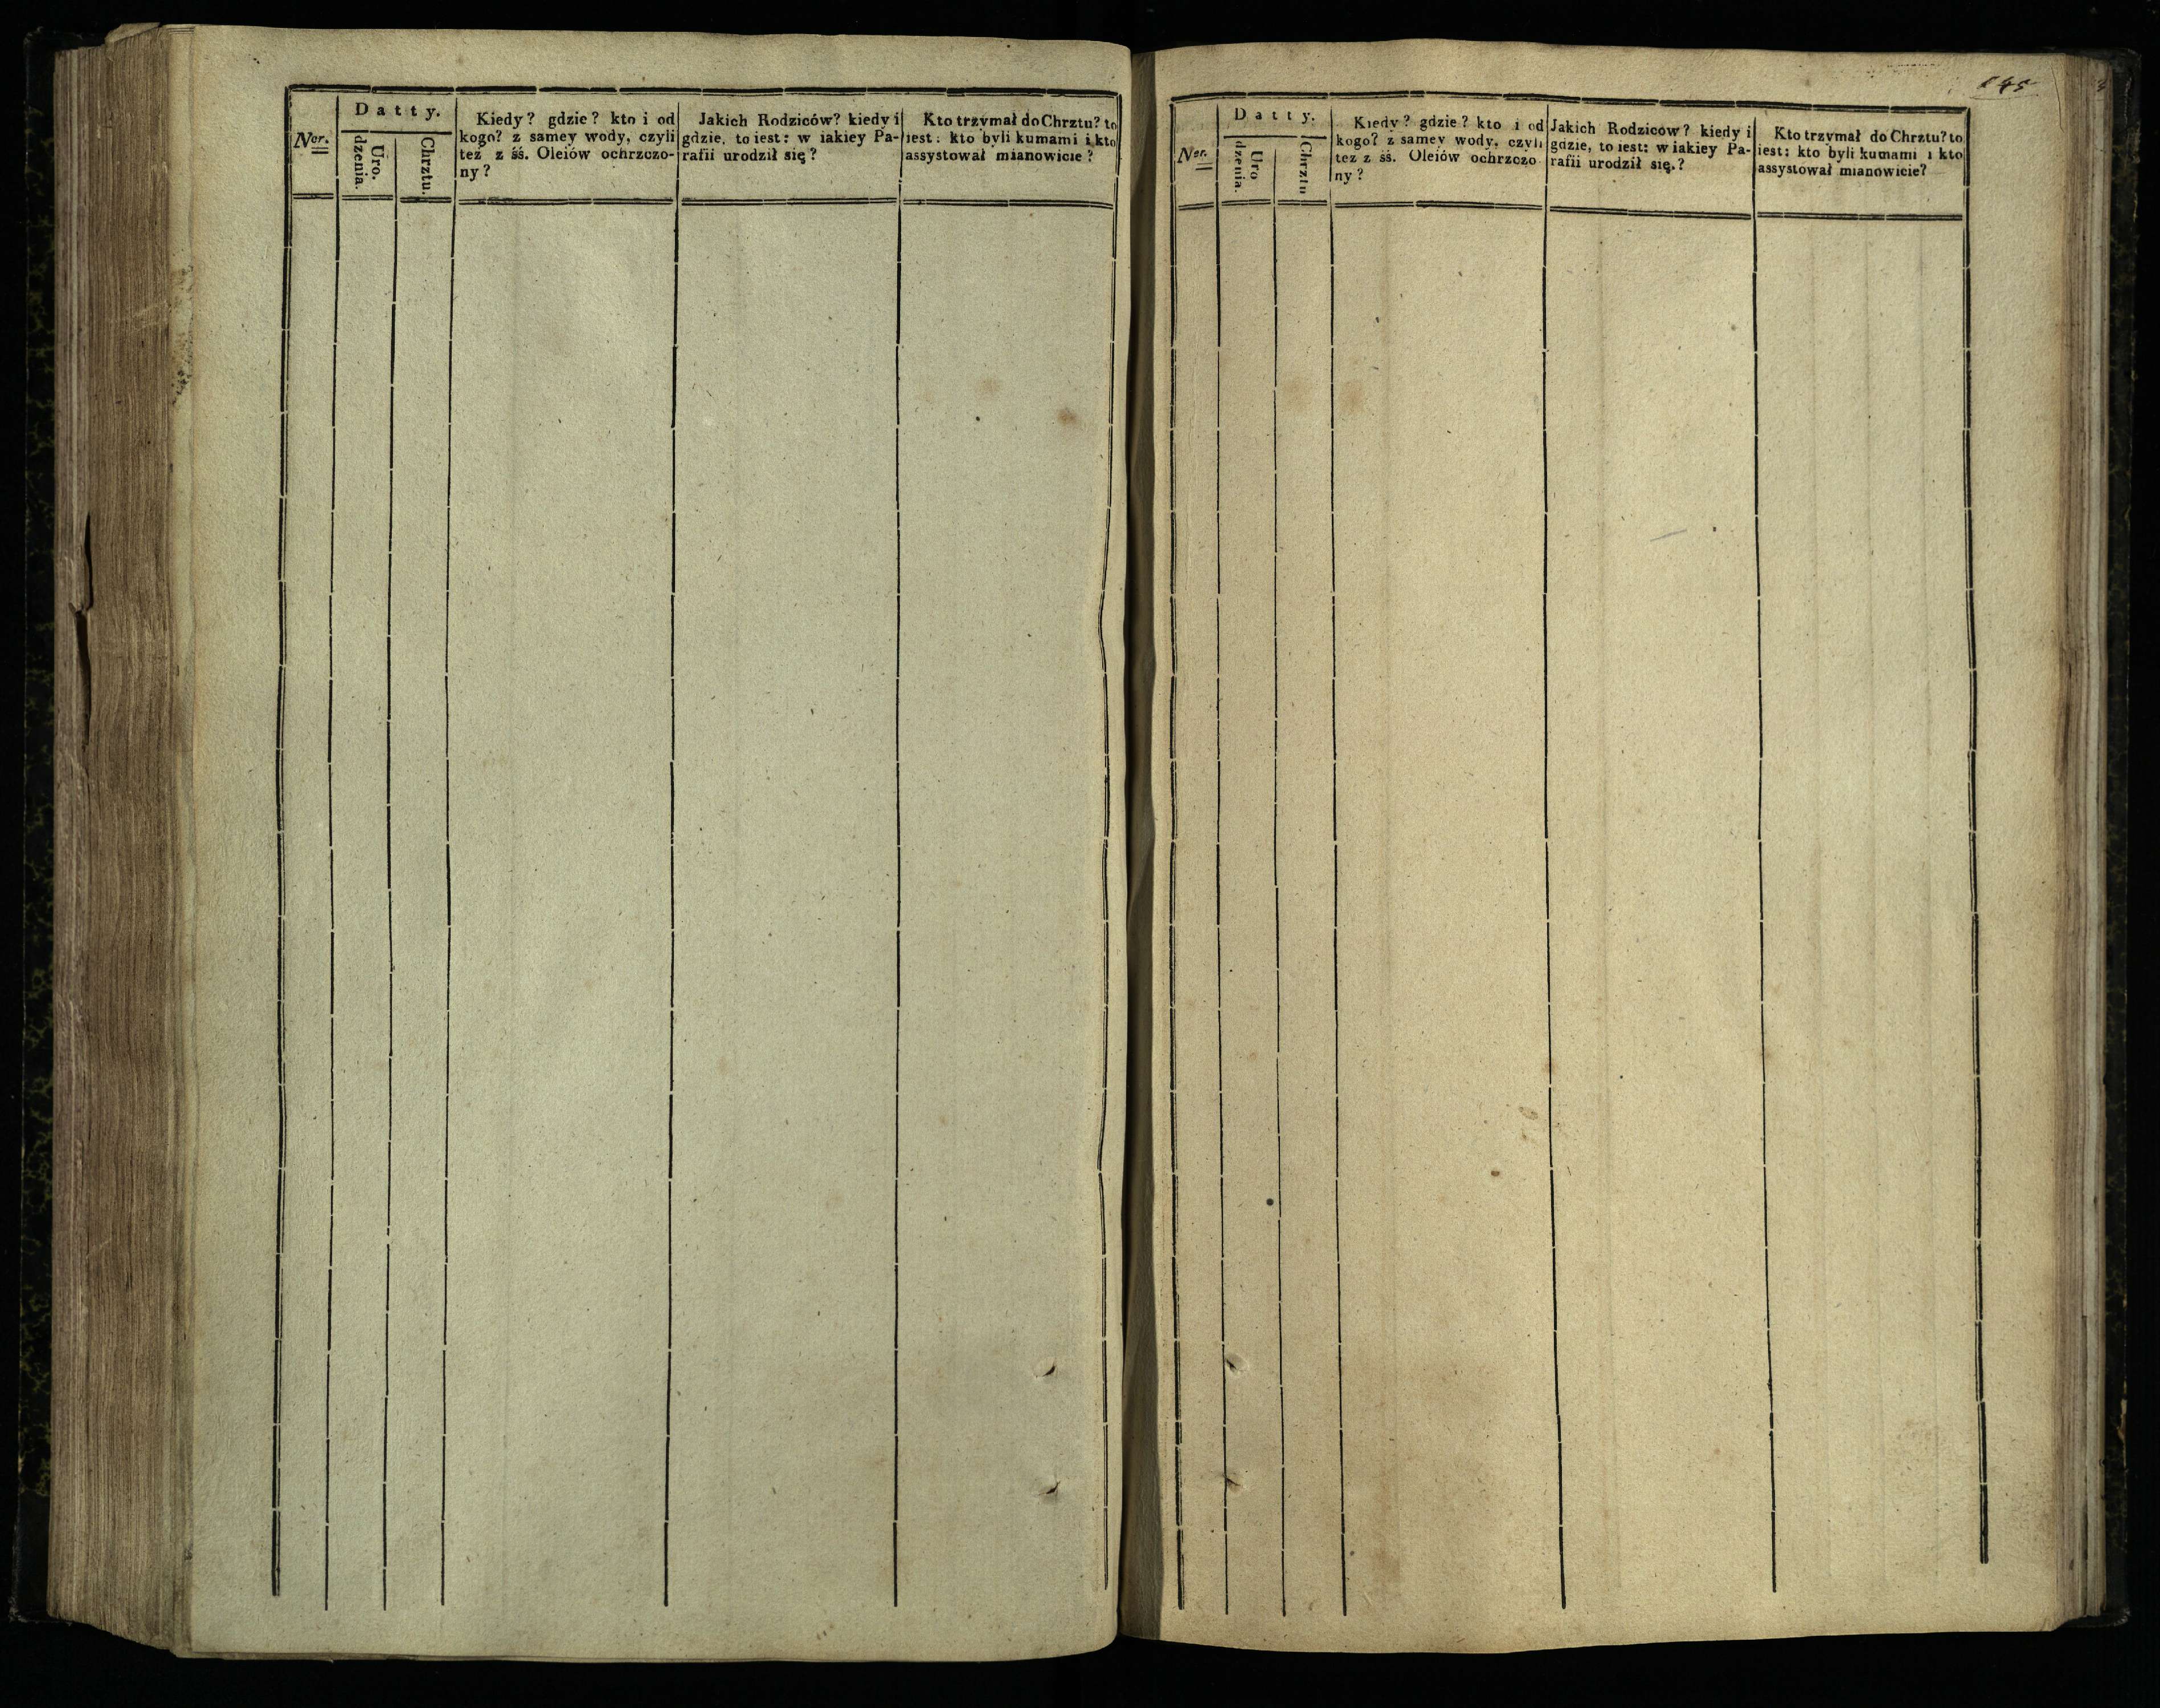 Ner.
Datty.
Uro.
dzenia.
Chrztu.
Kiedy? gdzie? kto i od
kogo? z samey wody, czyli
też z śś. Oleiów ochrzczo-
ny?
Jakich Rodziców? kiedy i
gdzie, to iest: w iakiey Pa-
rafii urodził się?
Kto trzymał do Chrztu? to
iest: kto byli kumami i kto
assystował mianowicie?
Ner.
Datty.
Uro
dzenia.
Chrztu
Kiedy? gdzie? kto i od
kogo? z samey wody, czyli
tez z śś. Oleiów ochrzczo
ny?
Jakich Rodziców? kiedy i
gdzie, to iest: w iakiey Pa-
rafii urodził się.?
Kto trzymał do Chrztu? to
iest: kto byli kumami i kto
assystował mianowicie?